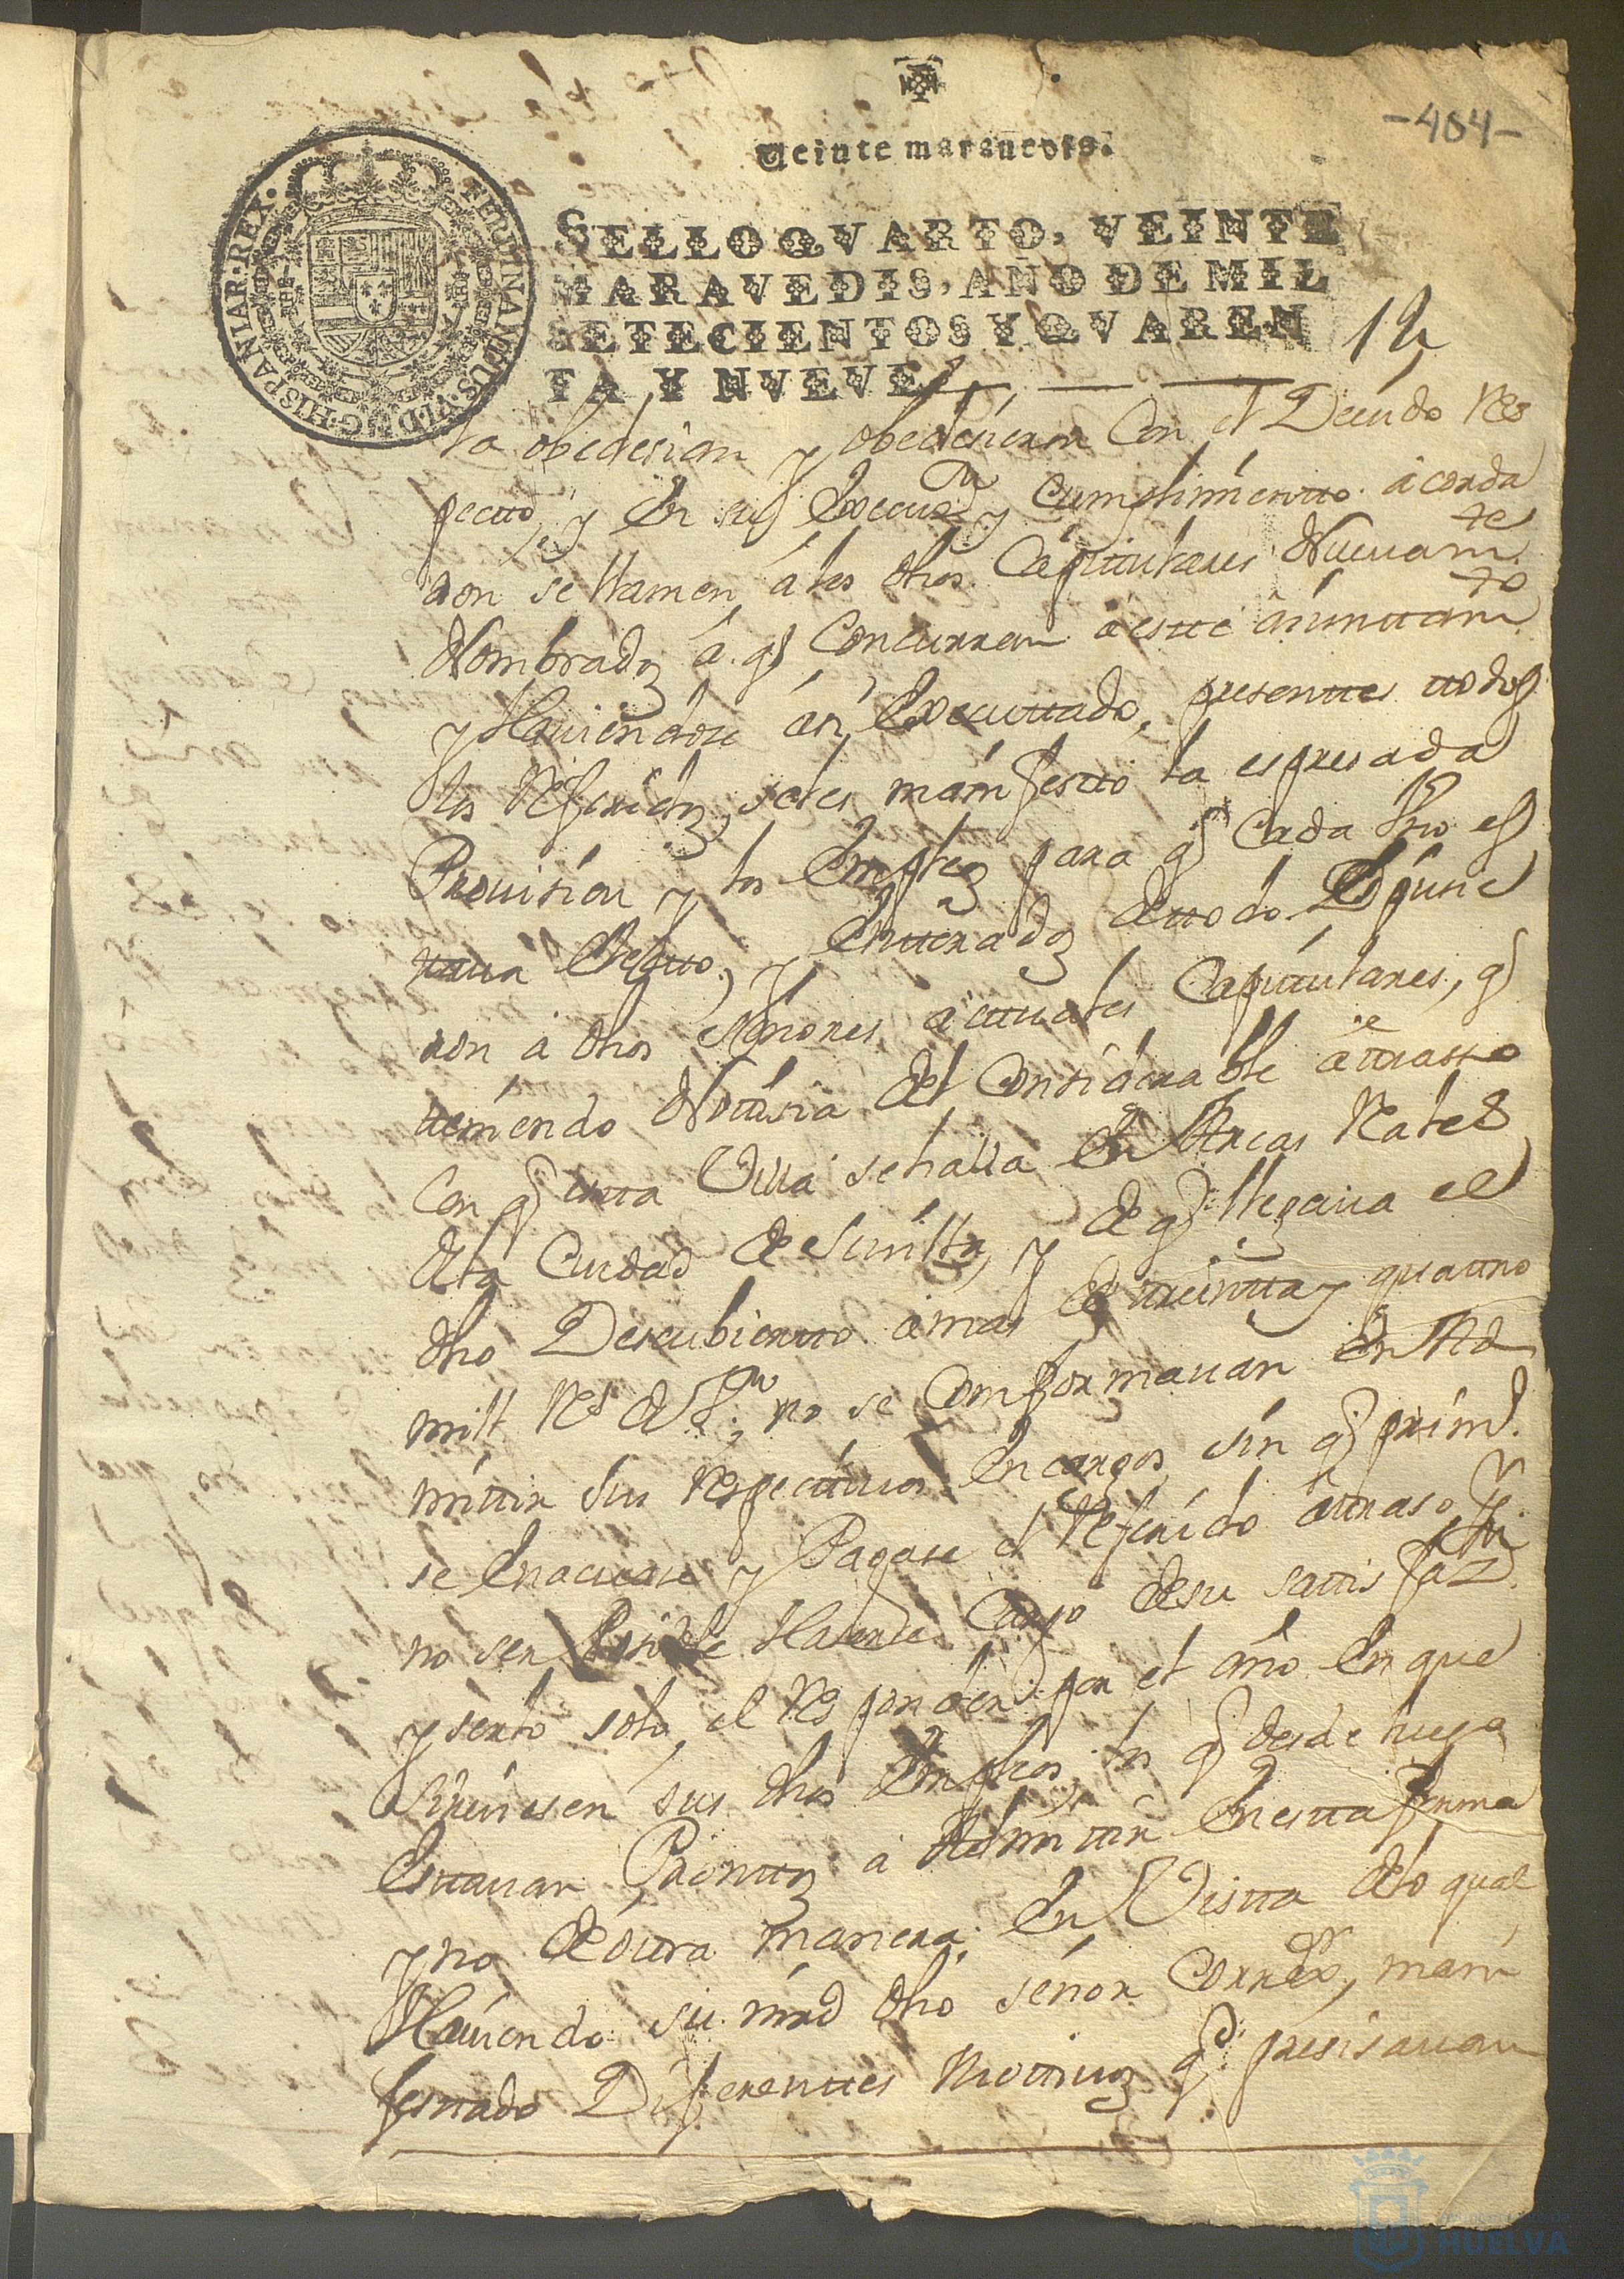 -404-
Veinte maravedis.
FERDINANDUS·VI·D·G·HISPANIAR·REX·
SELLO QVARTO, VEINTE
MARAVEDIS, AÑO DE MIL
SETECIENTOS Y QVAREN
TA Y NVEVE.
12
la obedesian y obedesieron Con el Devido Res
pecto, y En su Execuon y Cumplimientto acorda
ron se llamen a los dhos Capitulares Nuevamte
Nombrados a q Concurran a estte aiunttamto
y Haviendose asi Executtado, presenttes ttodos
los Referidos, seles manifestto la espresada
Provision y los Empleos para q Cada Vno es
ttava Electto, y Entterados de ttodo Espusie
ron a dhos señores actuales Capittulares, q
tteniendo Nottisia del Considerable attrasso
Con q estta Villa se halla En Arcas Rales
de la Ciudad de Sevilla, y de q llegava el
dho Descubiertto a mas de ttreintta y quattro
mill Rs de Vn; no se Comformavan En Ad
mittir sus Respecttivos Encargos, sin q prim.
se Enacuase y Pagase el Referido attraso, Pr
no ser Posible Haserse Cargo de su sattisfazn
y serlo solo, el Responder por el año En que
Sirviesen sus dhos Empleos, los q desde luego
Esttavan Promttos a Admittir En estta forma
y no de ottra manera: En Vistta de lo qual
Haviendo su mrd dho señor Correxor, mani
festtado Diferenttes Mottivos q presisavan
HUELVA